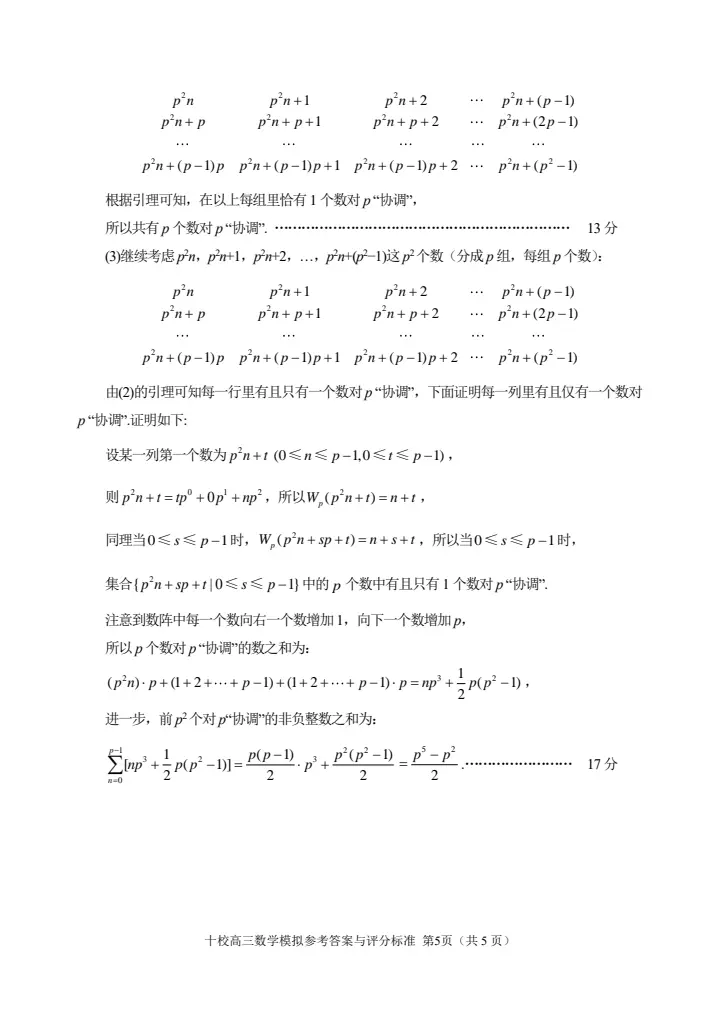 p²n p²n+1 p²n+2 ⋯ p²n+(p−1)
p²n+p p²n+p+1 p²n+p+2 ⋯ p²n+(2p−1)
⋯ ⋯ ⋯ ⋯ ⋯
p²n+(p−1)p p²n+(p−1)p+1 p²n+(p−1)p+2 ⋯ p²n+(p²−1)
根据引理可知，在以上每组里恰有 1 个数对 p “协调”，
所以共有 p 个数对 p “协调”. ………………………………………………………… 13 分
(3)继续考虑 p²n，p²n+1，p²n+2，…，p²n+(p²−1)这 p² 个数（分成 p 组，每组 p 个数）：
p²n p²n+1 p²n+2 ⋯ p²n+(p−1)
p²n+p p²n+p+1 p²n+p+2 ⋯ p²n+(2p−1)
⋯ ⋯ ⋯ ⋯ ⋯
p²n+(p−1)p p²n+(p−1)p+1 p²n+(p−1)p+2 ⋯ p²n+(p²−1)
由(2)的引理可知每一行里有且只有一个数对 p “协调”，下面证明每一列里有且仅有一个数对
p “协调”.证明如下:
设某一列第一个数为 p²n+t (0≤n≤p−1,0≤t≤p−1)，
则 p²n+t=tp⁰+0p¹+np²，所以Wₚ(p²n+t)=n+t，
同理当0≤s≤p−1时，Wₚ(p²n+sp+t)=n+s+t，所以当0≤s≤p−1时，
集合{p²n+sp+t|0≤s≤p−1}中的 p 个数中有且只有 1 个数对 p “协调”.
注意到数阵中每一个数向右一个数增加 1，向下一个数增加 p，
所以 p 个数对 p “协调”的数之和为：
(p²n)·p+(1+2+⋯+p−1)+(1+2+⋯+p−1)·p=np³+1/2 p(p²−1)，
进一步，前 p² 个对 p“协调”的非负整数之和为：
∑_{n=0}^{p−1}[np³+1/2 p(p²−1)]=p(p−1)/2·p³+p²(p²−1)/2=(p⁵−p²)/2 .…………………… 17 分
十校高三数学模拟参考答案与评分标准 第5页（共 5 页）